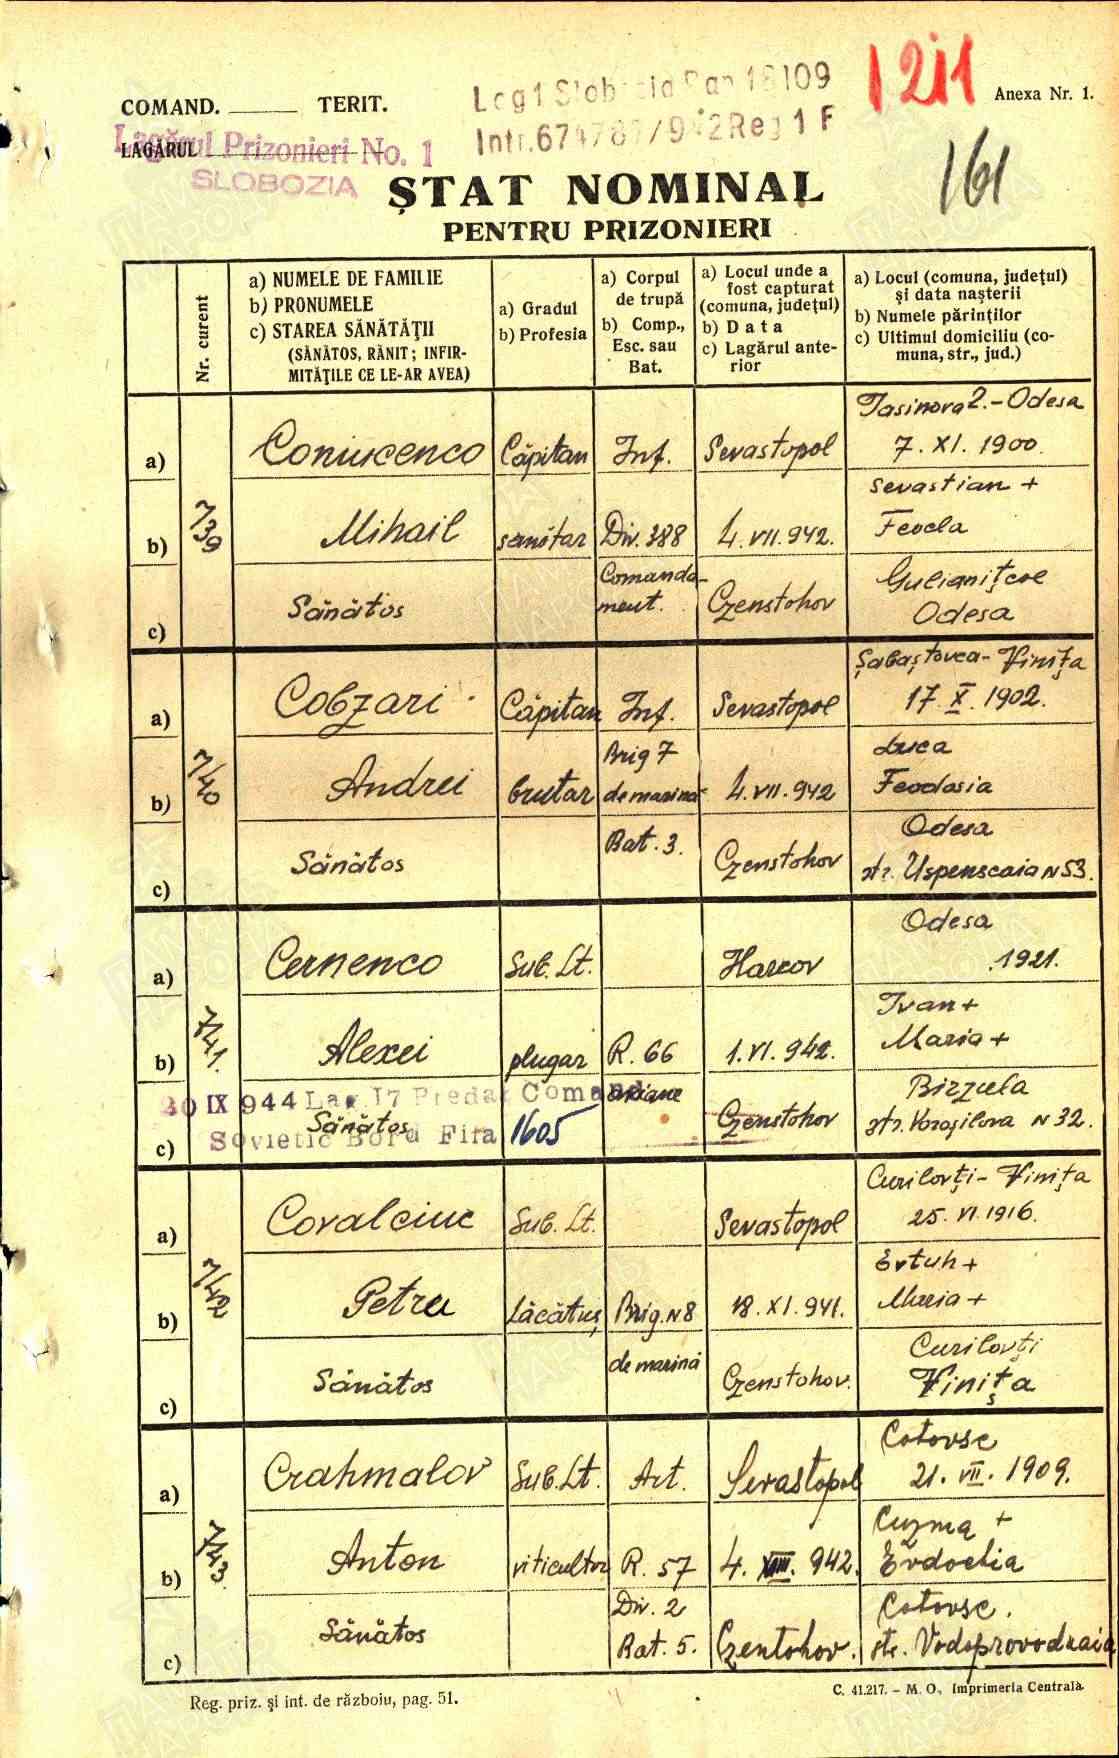 COMAND. ______ TERIT.
LAGĂRUL
Lagărul Prizonieri No. 1
SLOBOZIA
Lag 1 Slobozia Pan 18109
Intr. 674787/942 Reg 1 F
1211
Anexa Nr. 1.
161
ȘTAT NOMINAL
PENTRU PRIZONIERI
Nr. curent
a) NUMELE DE FAMILIE
b) PRONUMELE
c) STAREA SĂNĂTĂȚII
(SĂNĂTOS, RĂNIT; INFIR-
MITĂȚILE CE LE-AR AVEA)
a) Gradul
b) Profesia
a) Corpul
de trupă
b) Comp.,
Esc. sau
Bat.
a) Locul unde a
fost capturat
(comuna, județul)
b) Data
c) Lagărul ante-
rior
a) Locul (comuna, județul)
și data nașterii
b) Numele părinților
c) Ultimul domiciliu (co-
muna, str., jud.)
7/39
a) Coniucenco Căpitan Inf. Sevastopol Iasinova 2.-Odesa
7. XI. 1900.
b) Mihail sanitar Div. 388 4. VII. 942. Sevastian +
Feocla
c) Sănătos Comanda-
ment. Czenstohov Gulianițcoe
Odesa
7/40
a) Cobzari Căpitan Inf. Sevastopol Șabaștovca-Vinița
17. X. 1902.
b) Andrei brutar Brig 7
de marină 4. VII. 942 Luca
Feodosia
c) Sănătos Bat. 3. Czenstohov Odesa
str. Uspenscaia N 53.
7/41.
a) Cernenco Sub. Lt. Harcov Odesa
1921.
b) Alexei plugar R. 66 1. VI. 942. Ivan +
Maria +
20 IX 944 Lag. 17 Predat Comand
Sovietic Bord Fila 1605
c) Sănătos Czenstohov Birzula
str. Voroșilova N 32.
7/42
a) Covalciuc Sub. Lt. Sevastopol Curilovți-Vinița
25. VI. 1916.
b) Petru Lăcătuș Brig. N 8 18. XI. 941. Evtuh +
Maria +
c) Sănătos de marină Czenstohov. Curilovți
Vinița
7/43.
a) Crahmalov Sub. Lt. Art. Sevastopol Cotovsc
21. VII. 1909.
b) Anton viticultor R. 57 4. 942. Cuzma +
Evdochia
c) Sănătos Div. 2
Bat. 5. Czentohov. Cotovsc.
str. Vodoprovodnaia
Reg. priz. și int. de războiu, pag. 51.
C. 41.217. - M. O., Imprimeria Centrală.